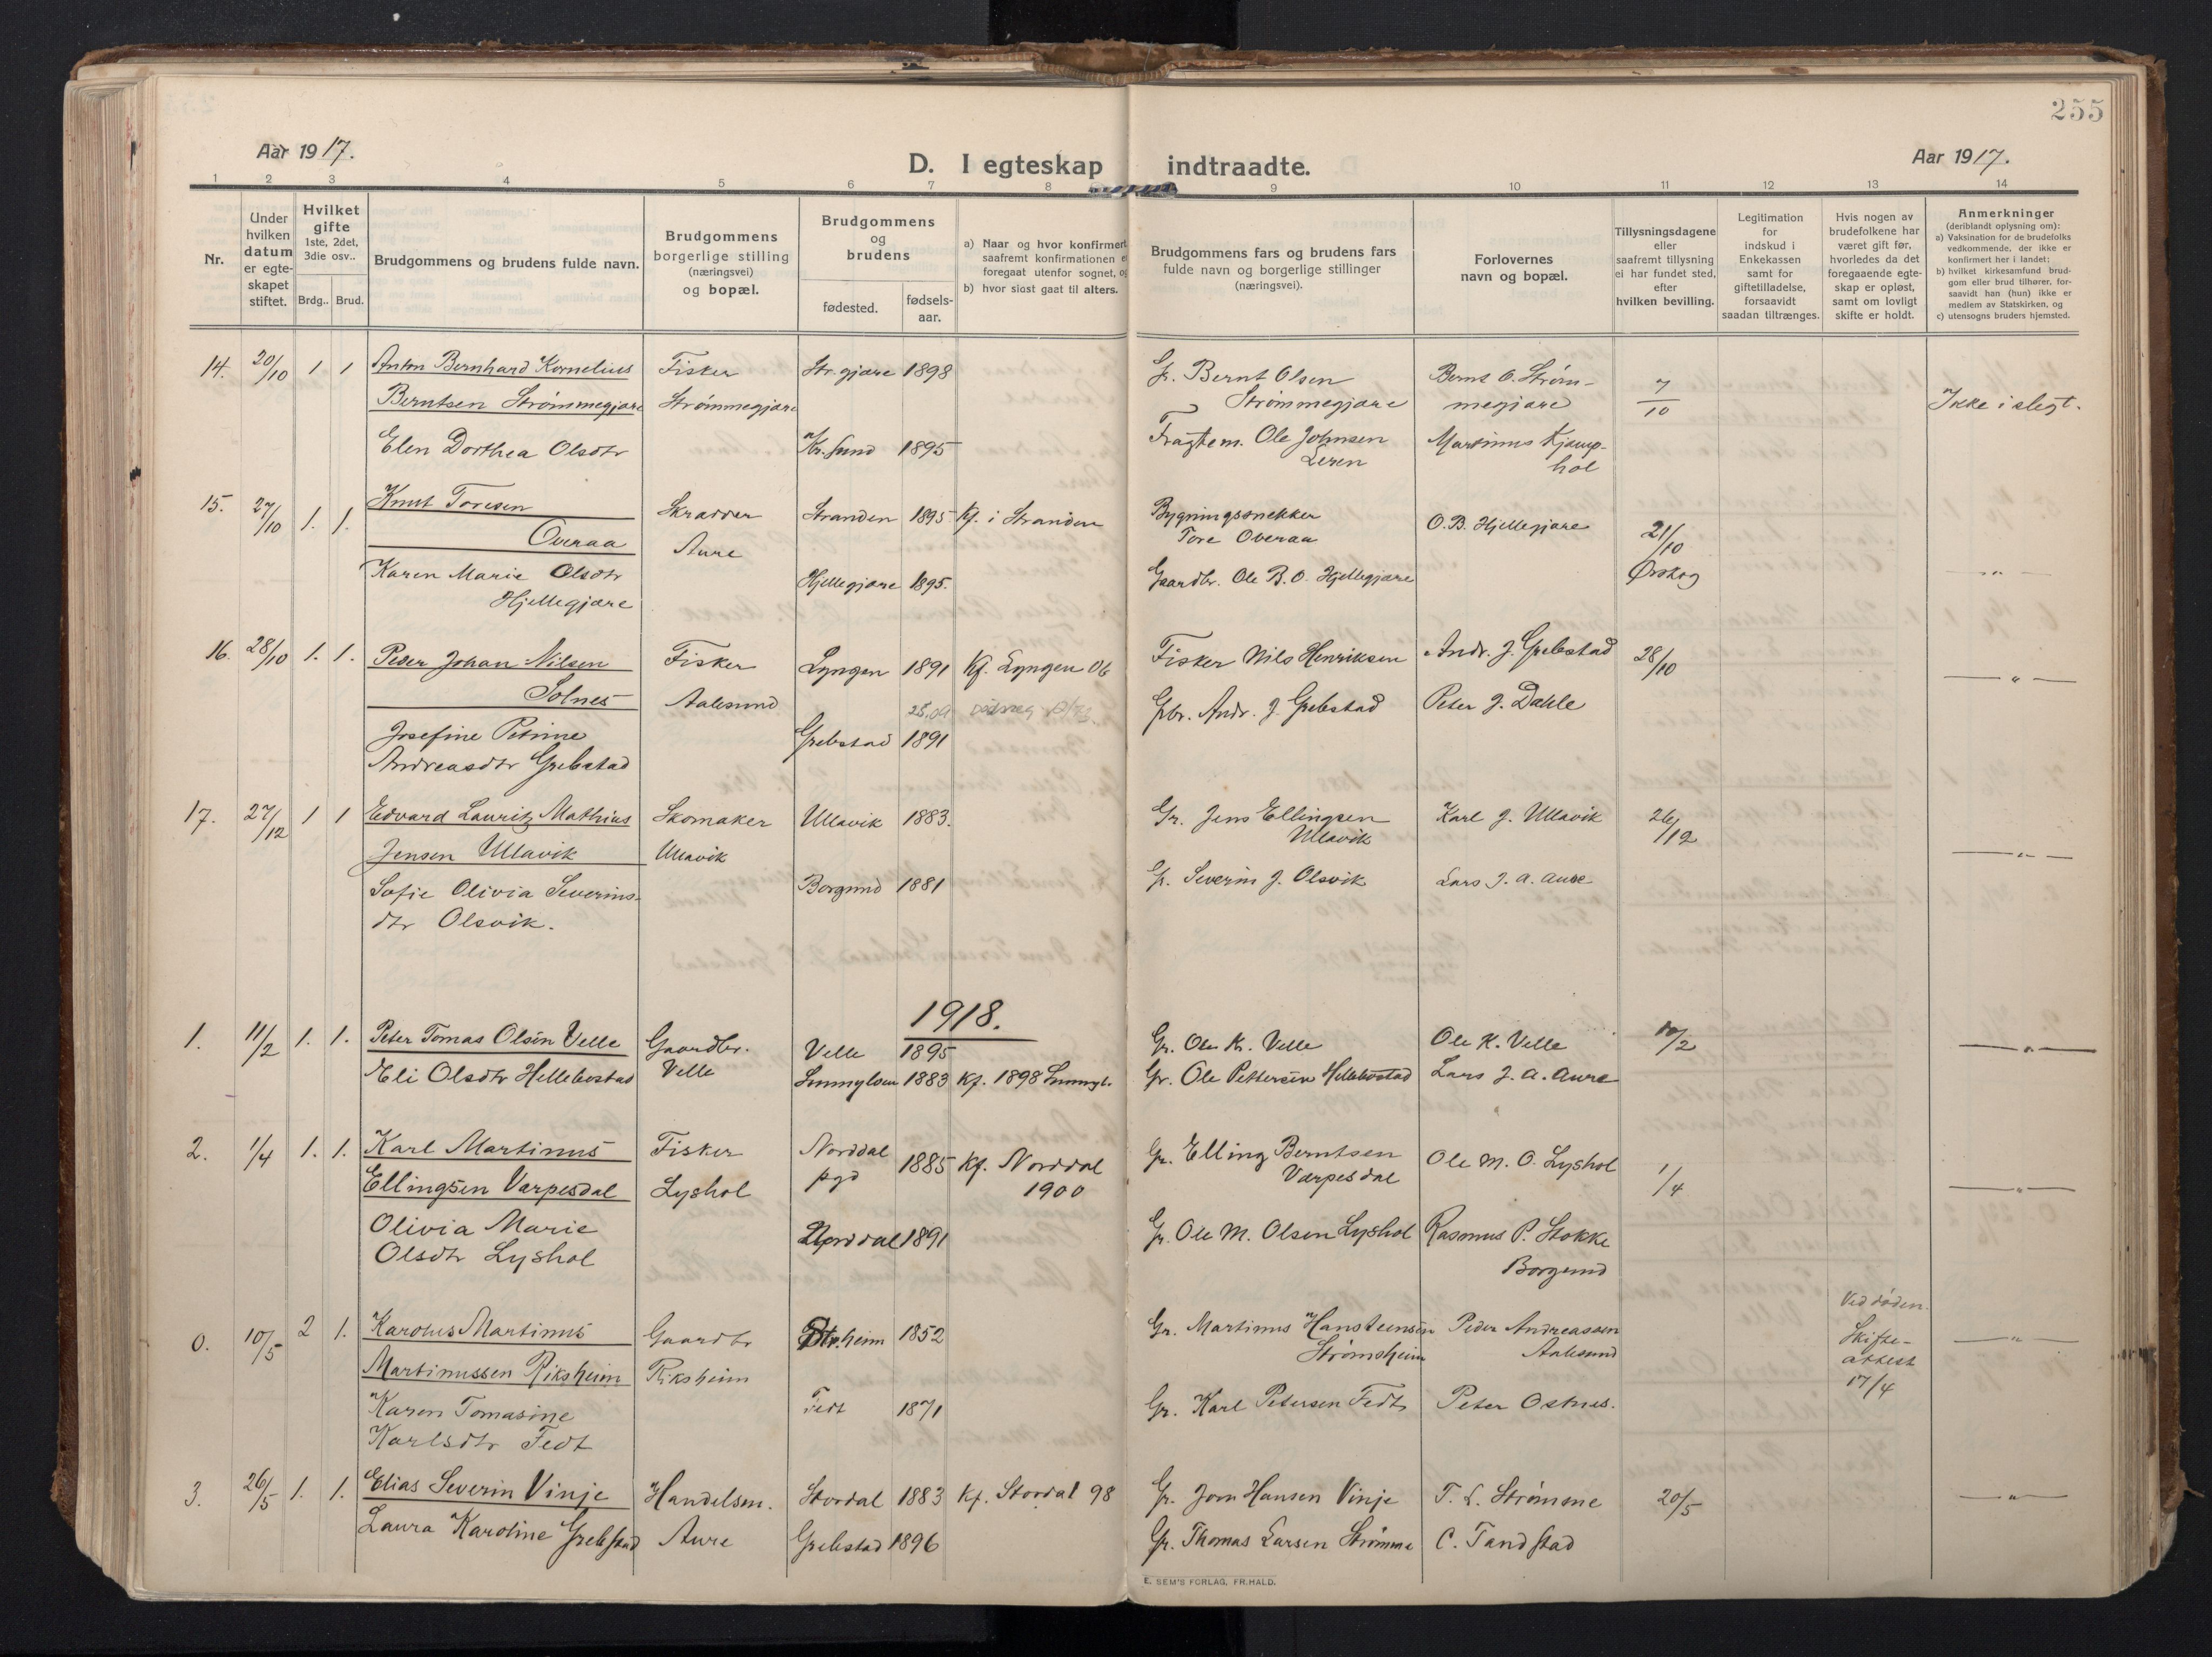 255
Aar 1917.
D. I egteskap indtraadte.
Aar 1917.
1 2 3 4 5 6 7 8 9 10 11 12 13 14
Nr.
Under
hvilken
datum
er egte-
skapet
stiftet.
Hvilket
gifte
1ste, 2det,
3die osv..
Brdg. Brud.
Brudgommens og brudens fulde navn.
Brudgommens
borgerlige stilling
(næringsvei)
og bopæl.
Brudgommens
og
brudens
fødested.
fødsels-
aar.
a) Naar og hvor konfirmert
saafremt konfirmationen
foregaat utenfor sognet,
b) hvor sidst gaat til alters.
Brudgommens fars og brudens fars
fulde navn og borgerlige stillinger
(næringsvei).
Forlovernes
navn og bopæl.
Tillysningsdagene
eller
saafremt tillysning
ei har fundet sted,
efter
hvilken bevilling.
Legitimation
for
indskud i
Enkekassen
samt for
giftetilladelse,
forsaavidt
saadan tiltrænges.
Hvis nogen av
brudefolkene har
været gift før,
hvorledes da det
foregaaende egte-
skap er opløst,
samt om lovligt
skifte er holdt.
Anmerkninger
(deriblandt oplysning om):
a) Vaksination for de brudefolks
vedkommende, der ikke er
konfirmert her i landet;
b) hvilket kirkesamfund brud-
gom eller brud tilhører, for-
saavidt han (hun) ikke er
medlem av Statskirken, og
c) utensogns bruders hjemsted.
14. 20/10 1 1 Anton Bernhard Kornelius Fisker Str.gjære 1898 Gr. Bernt Olsen Bernt O. Strøm- 7/10
Berntsen Strømmegjære Strømmegjære Strømmegjære megjære Ikke i slegt.
Elen Dorthea Olsdtr Kr.sund 1895 Fragtem. Ole Johnsen Martinus Kjemp-
Leren hol
15. 27/10 1. 1. Knut Toresen Skrædder Stranden 1895 Kf. i Stranden Bygningssnekker O.B. Hjellegjære 21/10
Overaa Aure Tore Overaa Ørskog
Karen Marie Olsdtr Hjellegjære 1895. Gaardbr. Ole B. O. Hjellegjære — " —
Hjellegjære
16. 28/10 1. 1. Peder Johan Nilsen Fisker Lyngen 1891 Kf. Lyngen 06 Fisker Nils Henriksen Andr. J. Grebstad 28/10
Solnes Aalesund 25.09 Gbr. Andr. J. Grebstad Peter J. Dahle — " —
Josefine Petrine Grebstad 1891
Andreasdtr Grebstad
17. 27/12 1 1 Edvard Lauritz Mathias Skomaker Ullavik 1883. Gr. Jens Ellingsen Karl J. Ullavik 26/12
Jensen Ullavik Ullavik Ullavik — " —
Sofie Olivia Severins- Borgund 1881 Gr. Severin J. Olsvik Lars J. A. Aure
dtr Olsvik.
1918.
1. 11/2 1. 1. Peter Tomas Olsen Velle Gaardbr. Velle 1895 Gr. Ole K. Velle Ole K. Velle 10/2 — " —
Eli Olsdtr Hellebostad Velle Sunnylven 1883 Kf. 1898 Sunnyl. Gr. Ole Pettersen Hellebostad Lars J. A. Aure
2. 1/4 1. 1. Karl Martinus Fisker Norddal 1885 Kf. Norddal Gr. Elling Berntsen Ole M. O. Lyshol 1/4
Ellingsen Varpesdal Lyshol pgd 1900 Varpesdal — " —
Olivia Marie Norddal 1891 Gr. Ole M. Olsen Lyshol Rasmus P. Stokke
Olsdtr Lyshol Borgund
0. 10/5 2 1. Karolus Martinus Gaardbr Str.heim 1852 Gr. Martinus Hansteensen Peder Andreassen Ved døden.
Martinussen Riksheim Riksheim Strømsheim Aalesund Skifte- — " —
attest
17/4
Karen Tomasine Fedt 1871 Gr. Karl Petersen Fedt Peter Osnes.
Karlsdtr Fedt
3. 26/5 1. 1. Elias Severin Vinje Handelsm. Stordal 1883 Kf. Stordal 98 Gr. Jorn Hansen Vinje T. L. Strømme 20/5 — " —
Laura Karoline Grebstad Aure Grebstad 1896 Gr. Thomas Larsen Strømme C. Tandstad
E. SEM'S FORLAG, FR.HALD.